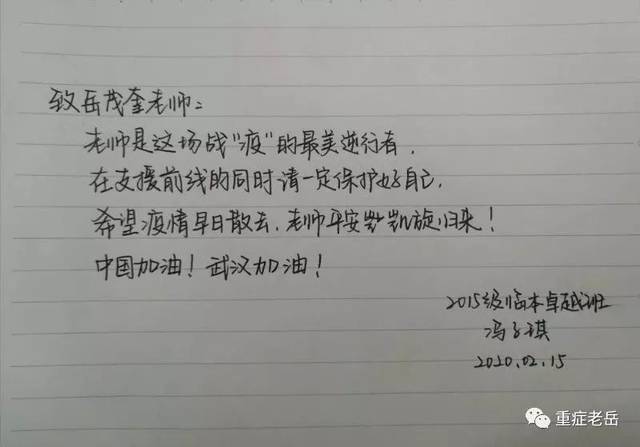 致岳茂奎老师：
老师是这场战"疫"的最美逆行者.
在支援前线的同时请一定保护好自己.
希望疫情早日散去.老师平安凯旋归来！
中国加油！武汉加油！
2015级临本卓越班
冯子琪
2020.02.15
重症老岳